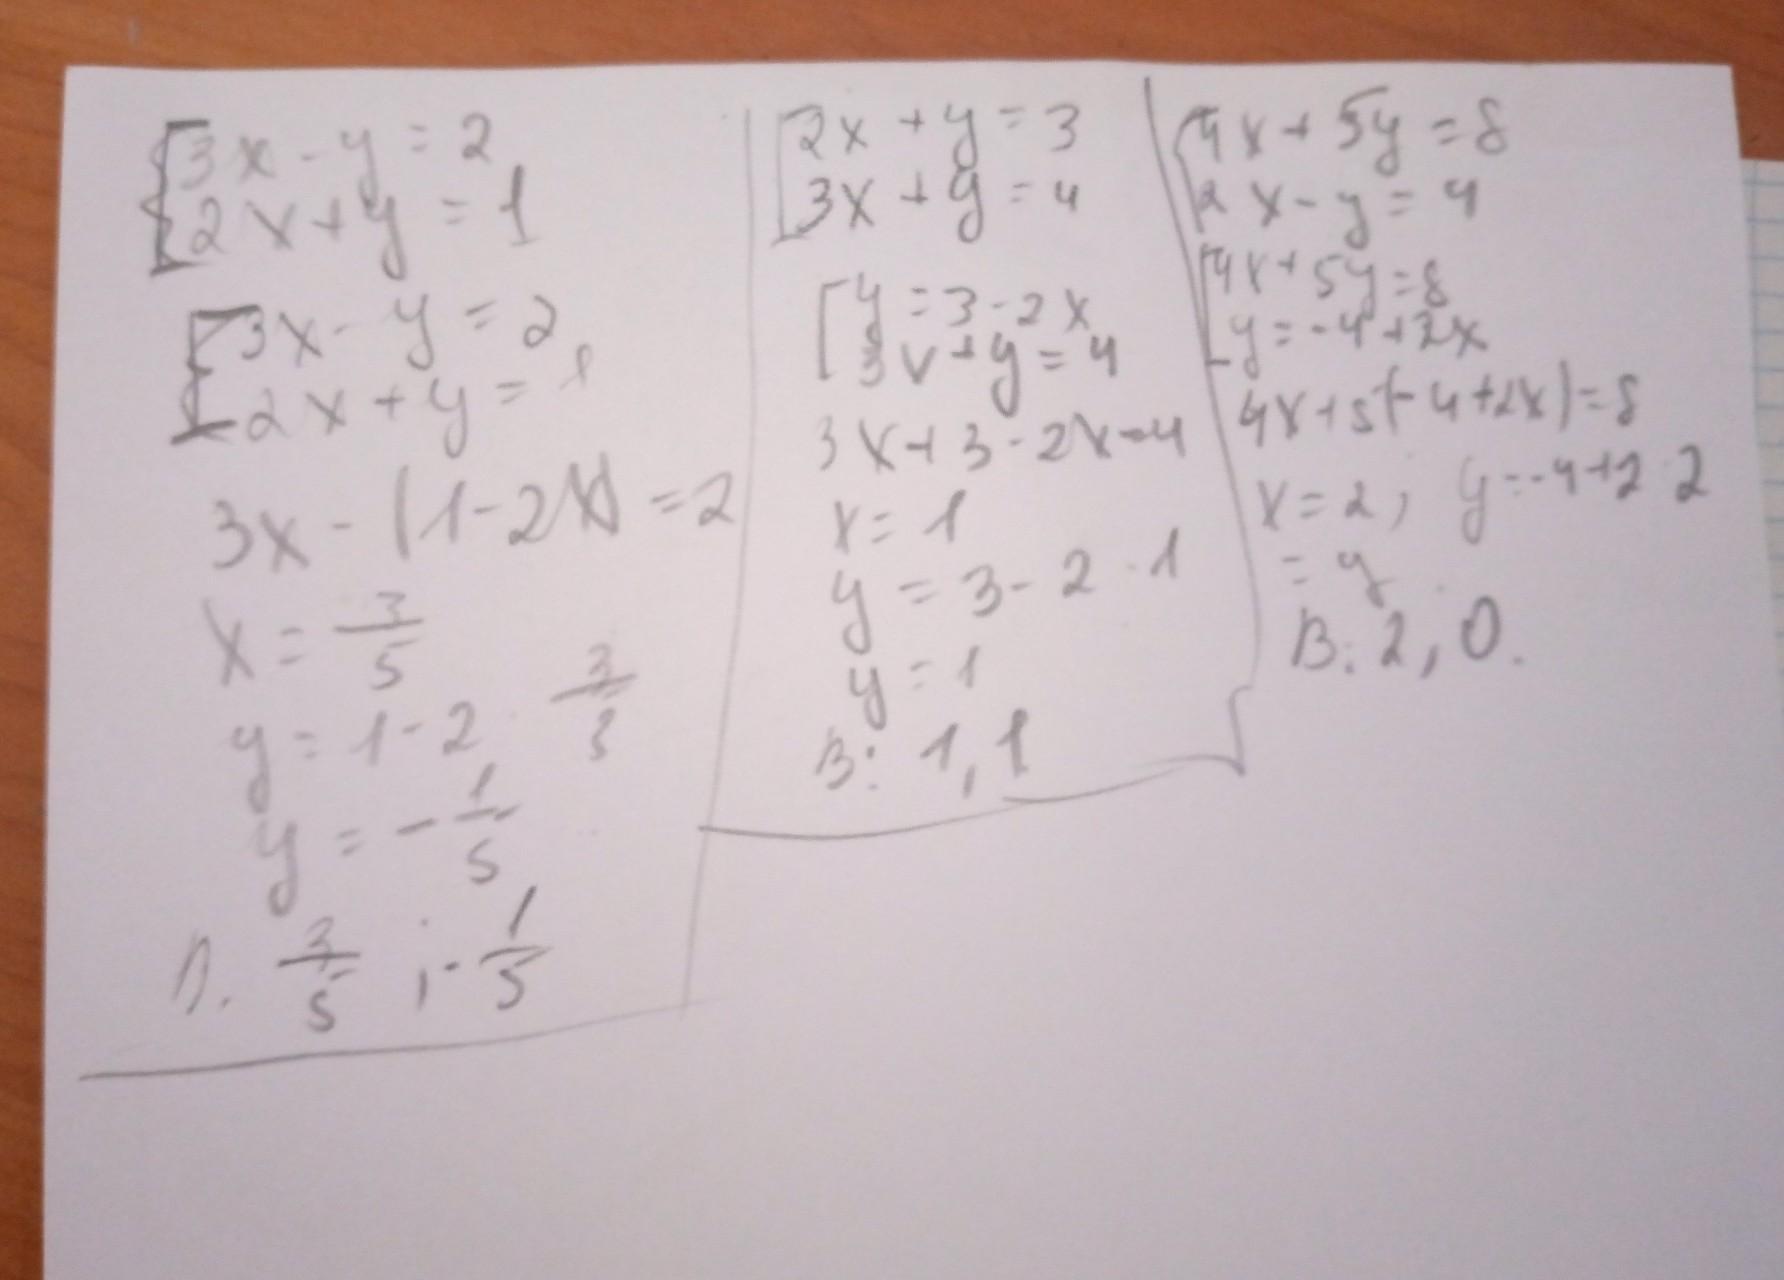 3x - y = 2
2x + y = 1
3x - y = 2
2x + y = 1
3x - (1 - 2x) = 2
x = 3/5
y = 1 - 2 · 3/3
y = - 1/5
3/5 ; - 1/5
2x + y = 3
3x + y = 4
y = 3 - 2x
3x + y = 4
3x + 3 - 2x = 4
x = 1
y = 3 - 2 · 1
y = 1
В: 1, 1
4x + 5y = 8
2x - y = 4
4x + 5y = 8
y = -4 + 2x
4x + 5(-4 + 2x) = 8
x = 2, y = -4 + 2 · 2
= y
В: 2, 0.